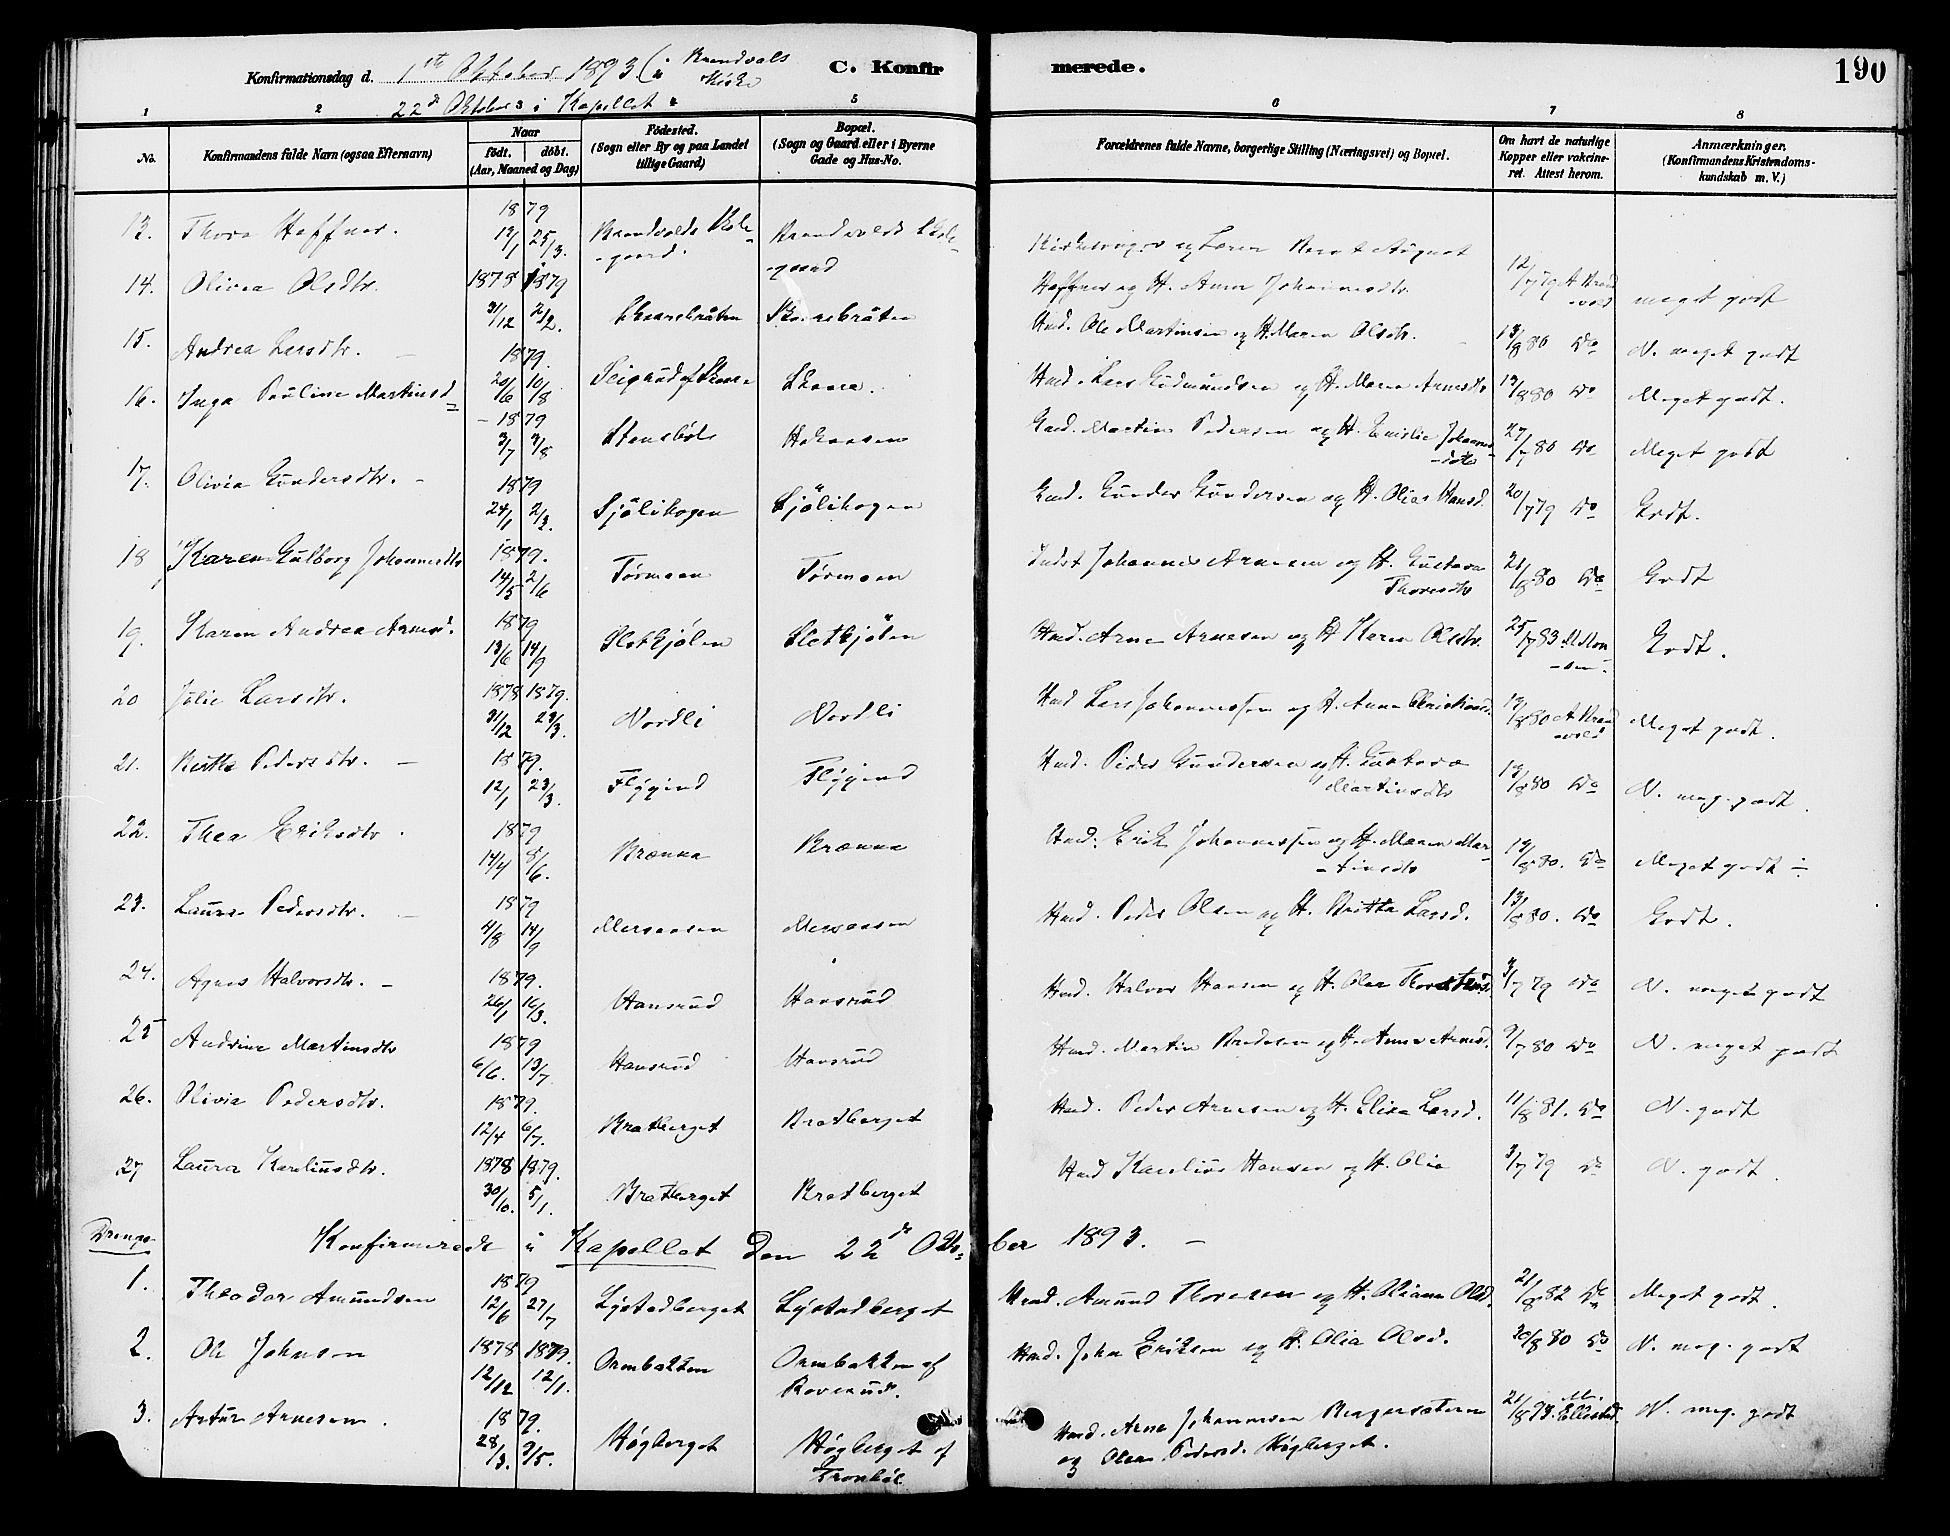 Konfirmationsdag d. 1ste Oktober 1893 (i Brandvals Kirke
22de Oktober i Kapellet
C. Konfirmerede.
190
1 2 5 6 7 8
No.
Konfirmandens fulde Navn (ogsaa Efternavn)
Naar
født. døbt.
(Aar, Maaned og Dag)
Fødested.
(Sogn eller By og paa Landet tillige Gaard)
Bopæl.
(Sogn og Gaard eller i Byerne Gade og Hus-No.
Forældrenes fulde Navne, borgerlige Stilling (Næringsvei) og Bopæl.
Om havt de naturlige Kopper eller vakcineret. Attest herom.
Anmærkninger.
(Konfirmandens Kristendomskundskab m. V.)
13. Thora Haffner. 1879 19/1 25/3. Brandvolds Skolegaard. Brandvolds Skolegaard Kirkesanger og Lærer Bernt August Haffner og H. Anne Johannesdtr. 12/7 79 A Brandvold meget godt
14. Olivia Olsdtr. 1878 31/12 1879 2/2. Skaarebråten Skaarebråten Hmd. Ole Martinsen og H. Maren Olsdtr. 13/8 80 Do N. meget godt
15. Andrea Larsdtr. – 1879. 20/6 10/8 Seigerud af Skaare Skaare. Hmd. Lars Gudmundsen og H. Maren Arnesdtr 13/8 80 Do Meget godt.
16. Inga Pauline Martinsd= 1879 3/7 3/8 Stensbøl Aabogen Gmd. Martin Pedersen og H. Emilie Johannesdtr 27/7 80 Do Meget godt
17. Olivia Gundersdtr. – 1879 24/1 2/3. Sjölihogen Sjölihogen Gmd. Gunder Gundersen og H. Olia Hansd. 20/7 79 Do Godt.
18 Karen Gulborg Johannesdtr 1879. 14/5 2/6 Tørmoen Tørmoen Indst Johannes Arnesen og H. Gustava Thoresdtr 21/8 80 Do Godt
19. Karen Andrea Arnesd. 1879 13/6 14/9 Sletkjølen Sletkjølen Hmd. Arne Arnesen og H Karen Olsdtr. 25/7 83 Godt.
20 Julie Larsdtr. 1878 31/12 1879. 23/3. Nordli Nordli Hmd Lars Johannessen og H. Anne Christiansd. 13/8 80 A Brandvold Meget godt.
21. Berthe Pedersdtr. – 1879. 12/1 23/3. Fløgind Fløgind Hmd. Peder Gundersen og H. Gustava Martinsdtr 13/8 80 Do N. meg. godt.
22. Thea Eriksdtr. 1879 14/4 8/6. Brænna Brænna Hmd. Erik Johannessen og H. Maren Martinsdtr 13/8 80. Do Meget godt ÷
23. Laura Pedersdtr. – 1879 4/8 14/9 Mersaasen Mersaasen Hmd. Peder Olsen og H. Britta Larsd. 13/8 80. Do Godt.
24. Agnes Halvorsdtr. – 1879. 26/1 16/3. Hansrud Hansrud Hmd. Halvor Hansen og H. Olea 3/7 79 Do N. meget godt
25 Andrine Martinsdtr 1879 6/6. 13/7. Hansrud Hansrud Hmd. Martin og H. Anne Arnesd. 9/7 80 Do N. meget godt
26. Olivia Pedersdtr. 1879. 12/4 6/7. Bratberget Bratberget Hmd. Peder Arnesen og H. Elisa Larsd. 11/8 81. Do N. godt
27 Laura Kareliusdtr. 1878 30/10. 1879. 5/1. Bratberget Bratberget Hmd Karelius Hansen og H. Olia 3/7 79 Do N. godt.
Drenge Konfirmerede i Kapellet den 22de Oktober 1893. –
1. Theodor Amundsen 1879 12/6 27/7 Lystadberget Lystadberget Hmd. Amund Thoresen og H. Oliana Olsd. 21/8 82 Do Meget godt.
2. Ole Johnsen 1878 12/12 1879. 12/1. Ormbakken Ormbakken af Roverud. Hmd. John Eriksen og H. Olia Olsd. 20/8 80 Do N. meg. godt
3. Artur Arnesen. 1879. 28/3. 9/5. Høgberget Høgberget af Tronbøl Hmd. Arne Johannesen og Olea Pedersd. Høgberget. 21/8 93. M. Ellestad N. meg. godt